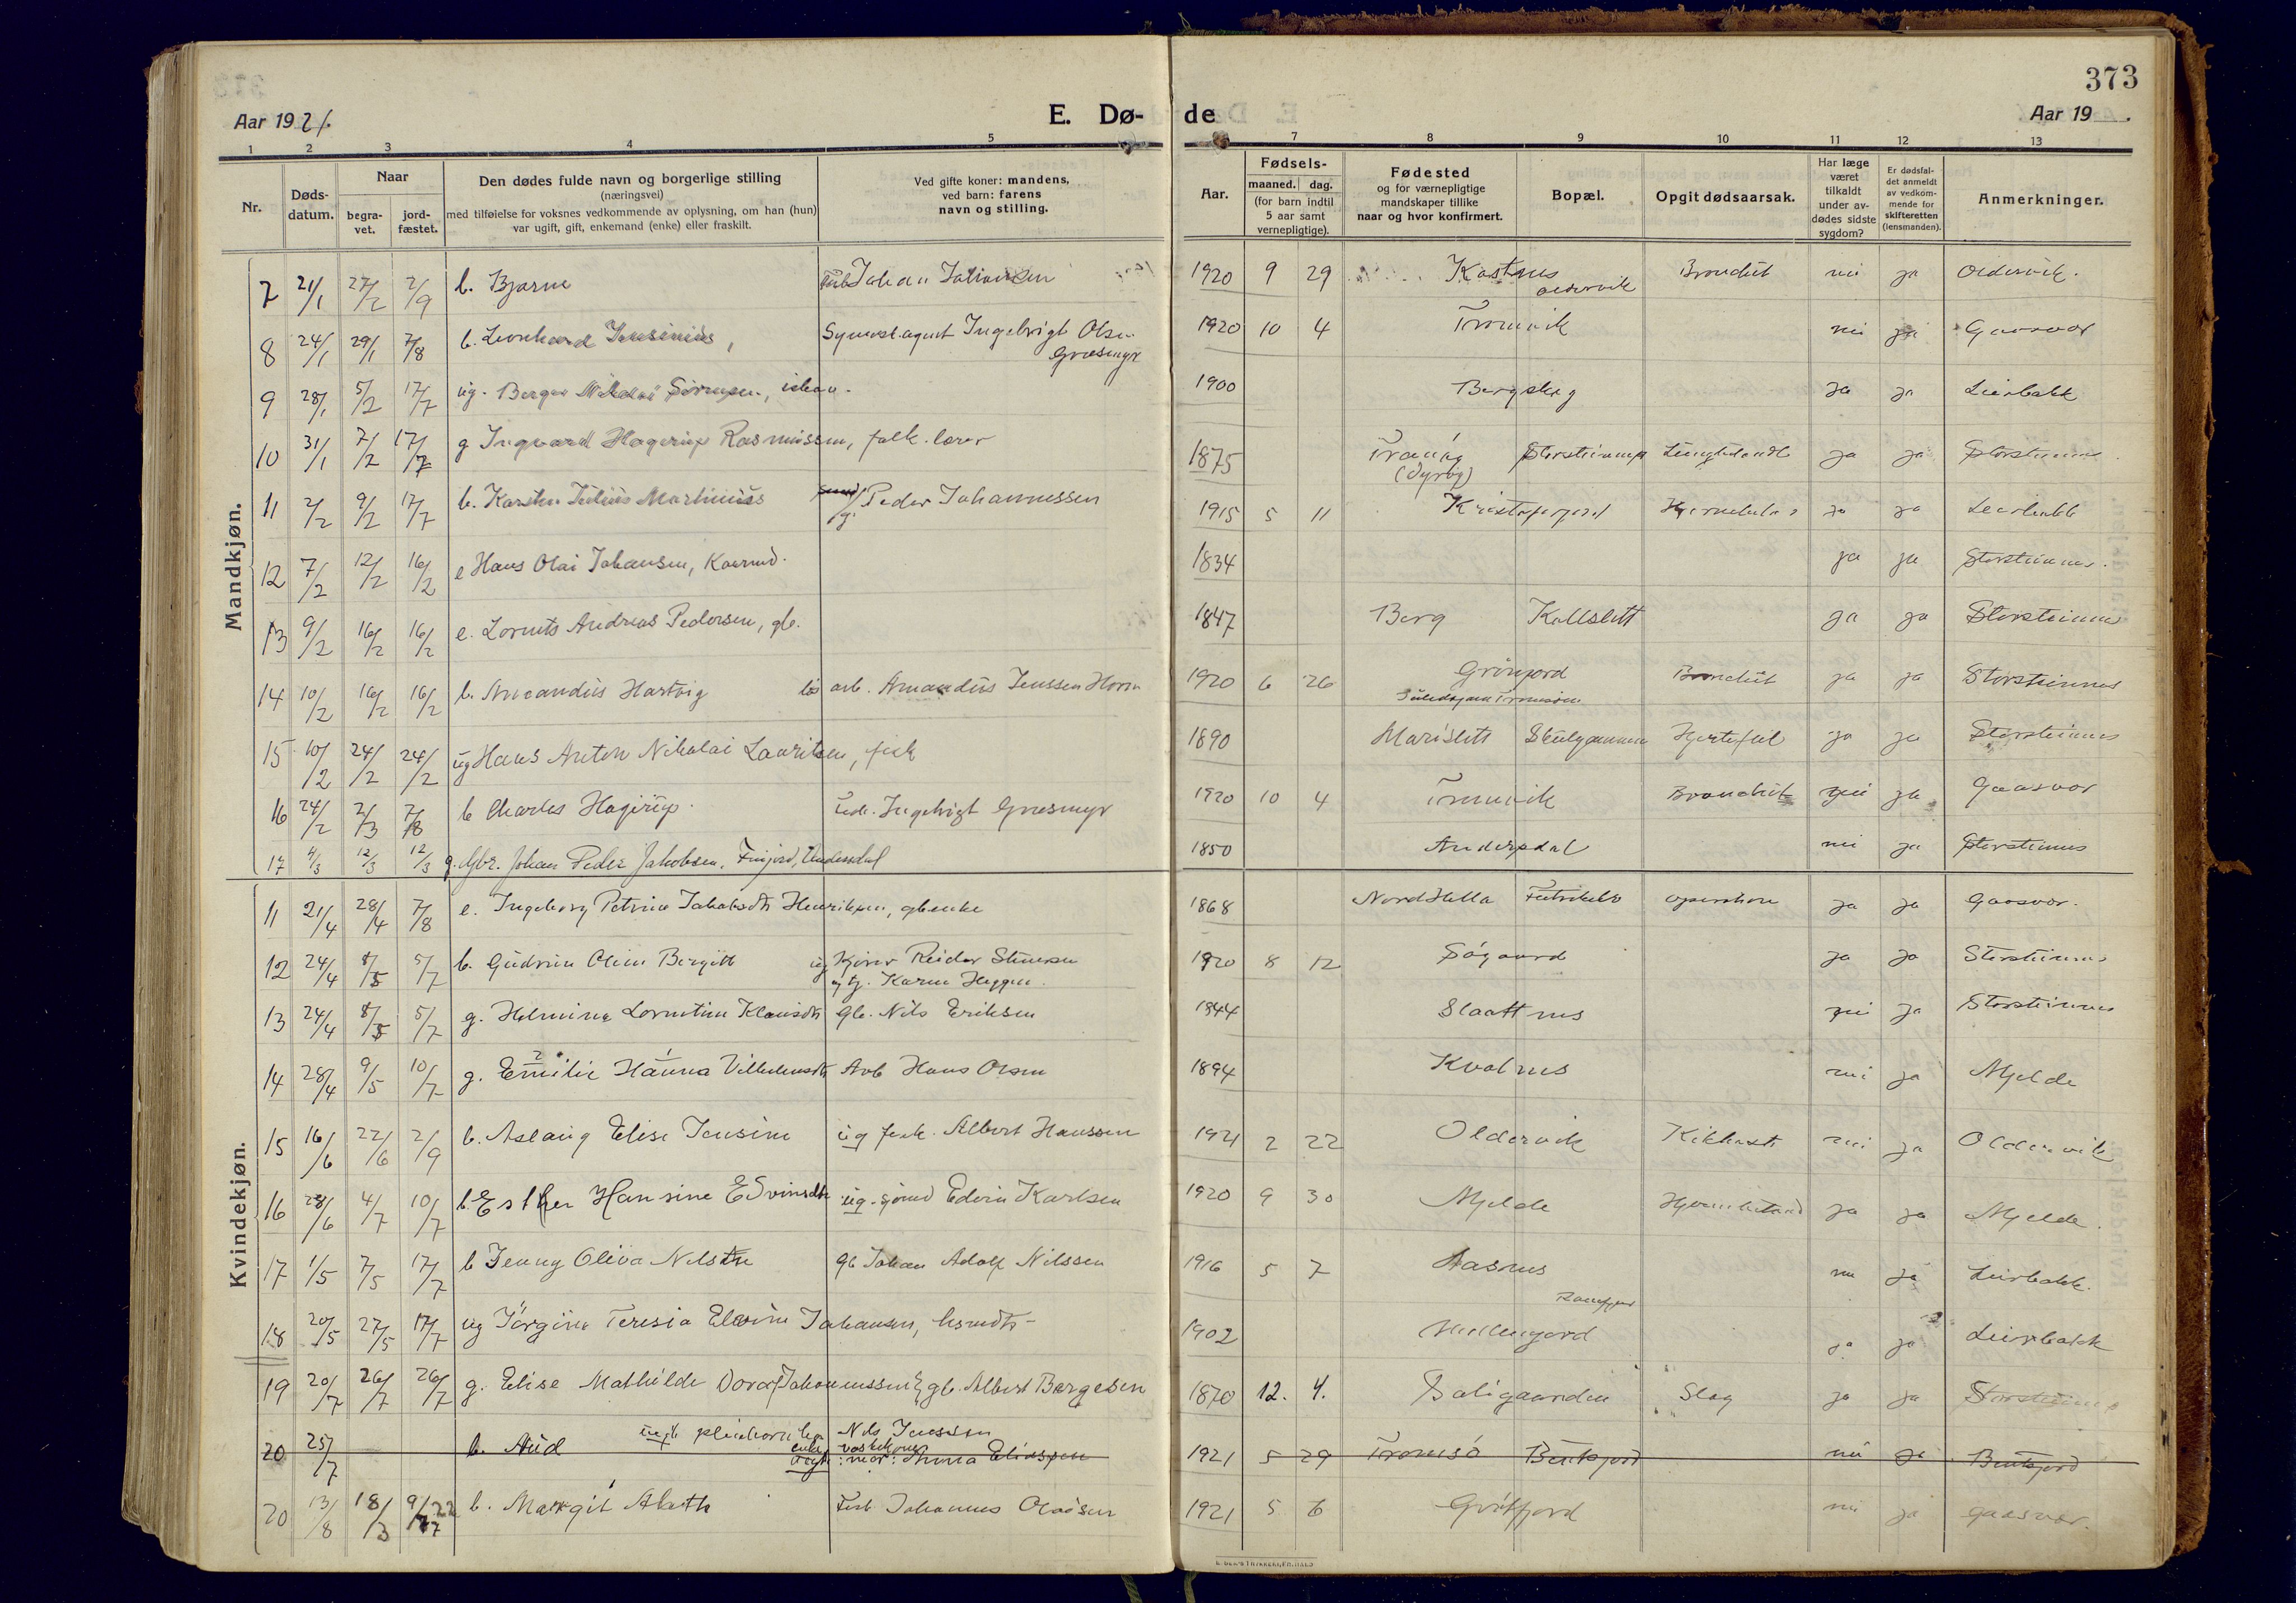 373
Aar 1921.
E. Dø-
de
Aar 19
1 2 3 4 5 7 8 9 10 11 12 13
Nr.
Døds-
datum.
Naar
begra-
vet.
jord-
fæstet.
Den dødes fulde navn og borgerlige stilling
(næringsvei)
med tilføielse for voksnes vedkommende av oplysning, om han (hun)
var ugift, gift, enkemand (enke) eller fraskilt.
Ved gifte koner: mandens,
ved barn: farens
navn og stilling.
Aar.
Fødsels-
maaned. dag.
(for barn indtil
5 aar samt
vernepligtige).
Fødested
og for værnepligtige
mandskaper tillike
naar og hvor konfirmert.
Bopæl.
Opgit dødsaarsak.
Har læge
været
tilkaldt
under av-
dødes sidste
sygdom?
Er dødsfal-
det anmeldt
av vedkom-
mende for
skifteretten
(lensmanden).
Anmerkninger.
Mandkjøn.
7 21/1 27/2 2/9 b. Bjarne Johan Johansen 1920 9 29 Oldervik Bronchit nei ja Oldervik.
8 24/1 29/1 7/8 b. Leonhard Jensinius, agent Ingebrigt Olsen
Græsmyr 1920 10 4 Tromvik nei ja Gaasvær
9 28/1 5/2 17/7 ug. Berger Nikolai Sørensen, 1900 ja ja Leirbakk
10 31/1 7/2 17/7 g Ingvard Hagerup Rasmussen, folk. lærer 1875 Tranøy
(Dyrøy) Storsteinnes ja ja Storsteinnes
11 2/2 9/2 17/7 b. Karsten Julius Martinius Peder Johannessen 1915 5 11 ja ja Leirbakk
12 7/2 12/2 16/2 e Hans Olai Johansen, Kaarmd. 1834 ja ja Storsteinnes.
13 9/2 16/2 16/2 e. Lornts Andreas Pedersen, gb. 1847 Berg Kallslett ja ja Storsteinnes
14 10/2 16/2 16/2 b. Amandus Hartvig løs arb. Amandus Jenssen Horn 1920 6 26 Grønjord
Bronchit ja ja Storsteinnes
15 10/2 24/2 24/2 ug Hans Anton Nikolai Lauritsen, fisk 1890 Marislett Skulgammen Hjertefeil ja ja Storsteinnes
16 24/2 2/3 7/8 b Charles Hagerup. Ingebrigt Græsmyr 1920 10 4 Tromvik Bronchit nei ja Gaasvær
17 4/3 12/3 12/3 g. Gbr. Johan Peder Jakobsen, Finjord, Andersdal 1850 Andersdal nei ja Storsteinnes
Kvindekjøn.
11 21/4 28/4 7/8 e. Ingeborg Petrine Jakobsdtr Henriksen, gb.enke 1868 Nord Hella ja ja Gaasvær.
12 24/4 8/5 5/7 b. Gudrun Oline Bergitt ug Reidar Stenersen
ug tj. Karen Heggen. 1920 8 12 Søgaard ja ja Storsteinnes
13 24/4 8/5 5/7 g. Helmine Lorentine Klausdtr gb. Nils Eriksen 1844 Slaattnes nei ja Storsteinnes
14 28/4 9/5 10/7 g. Emilie Hanna Villumsdtr Arb Hans Olsen 1894 Kvalnes nei ja Mjelde
15 16/6 22/6 2/9 b. Aslaug Elise Jensine ug fisk. Albert Hanssen 1921 2 22 Oldervik Kikhoste nei ja Oldervik
16 28/6 4/7 10/7 b. Esther Hansine Edvinsdtr ug. gjmd Edvin Karlsen 1920 9 30 Mjelde ja ja Mjelde.
17 1/5 7/5 17/7 b Jenny Oliva Nilsdtr gb Johan Adolf Nilssen 1916 5 7 Aasnes nei ja Leirbakk.
18 20/5 27/5 17/7 ug Jørgine Teresia Johansen, 1902 ja ja Leirbakk
19 20/7 26/7 26/7 g. Elise Mathilde Dorat Johannessen gb. Albert Børgesen 1870 12. 4. Slag ja ja Storsteinnes
20 25/7 b. Aud Nils Jenssen
mor: Anna Eliassen 1921 5 29 Tromsø Bentsjord nei ja Bentsjord
20 13/8 18/3 9/7 22 b. Margit Johannes Olaisen 1921 5 6 Grøtfjord nei ja Gaasvær.